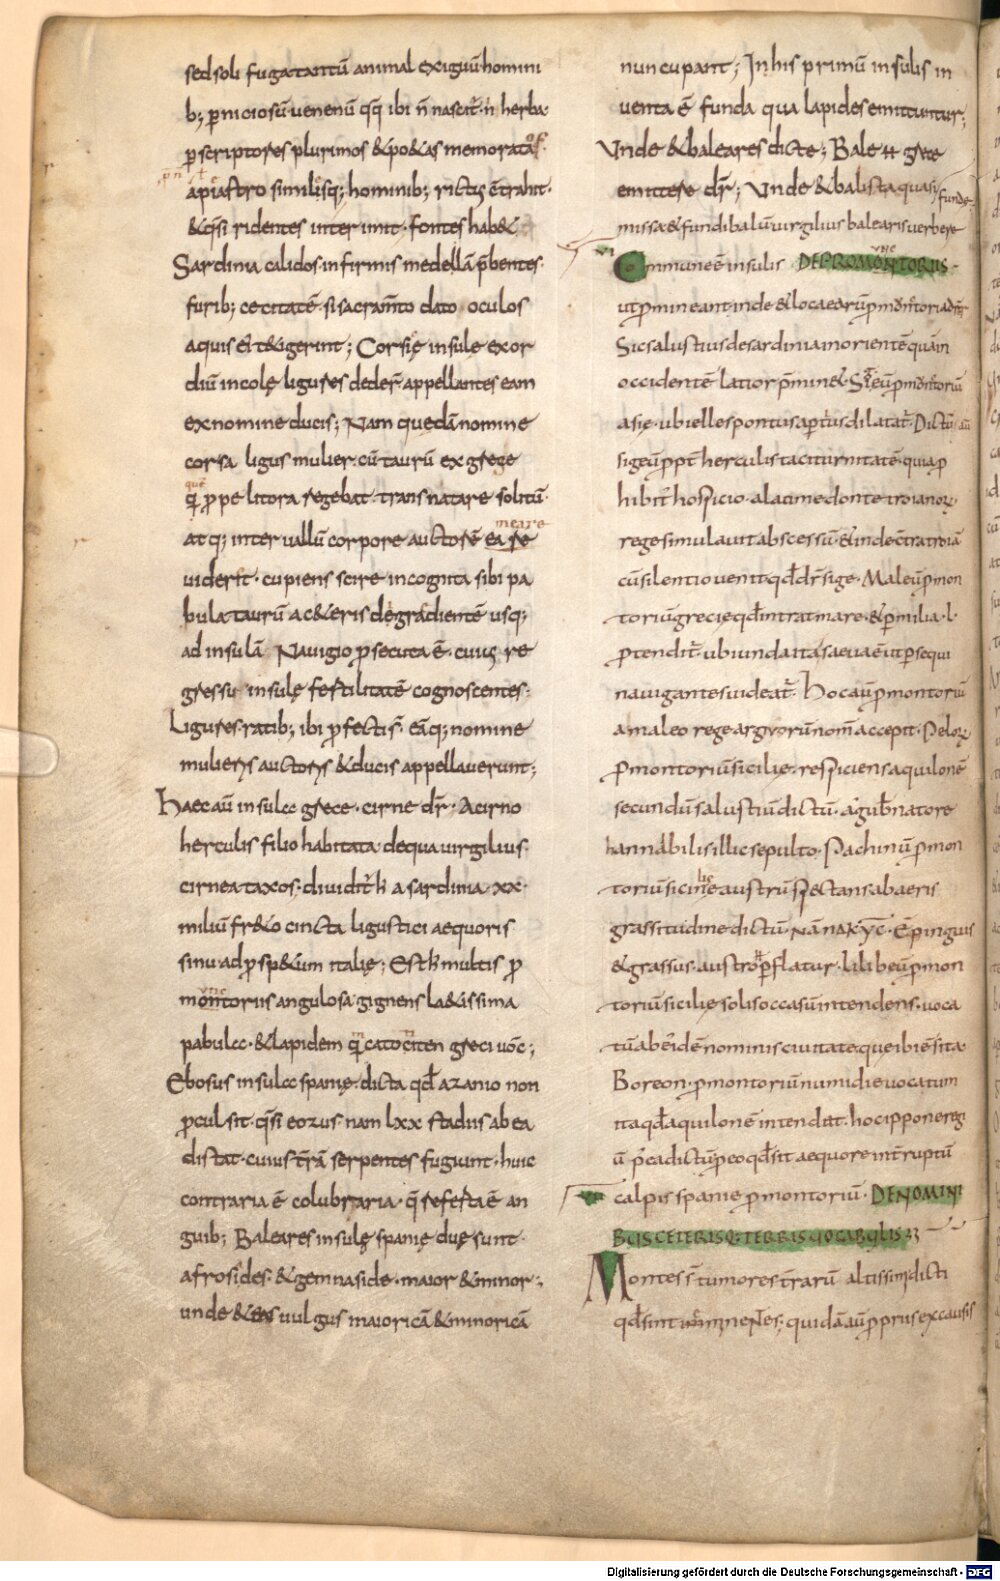 sed soli fuga tantū animal exiguū homini
b; p̄niciosū· venenū qq̄ ibi n̄ nascit̄· n̄ herba·
p̄ scriptores plurimos & po&as memorata
apiastro similisq; hominib; rictus c̄trahit·
& q̄si ridentes interimit· fontes hab&
Sardinia calidos infirmis medellā p̄bentes·
furib; cecitatē· si sacram̄to dato oculos
aquis ei tetigerint; Corsię insulę exor
diū incolę ligures deder̄ appellantes eam
ex nomine ducis; Nam quedā nomine
corsa ligus mulier· cū taurū ex grege
q̄ p̄pe litora regebat· transnatare solitū·
atq; inter vallū corpore auctorē ea re
viderit· cupiens scire incognita sibi pa
bula· taurū a c&eris degradientē usq;
ad insulā Navigio p̄secuta ē· cuius re
gressu insulę fertilitatē cognoscentes·
Ligures· ratib; ibi p̄fecti s̄· eāq; nomine
mulieris auctoris & ducis appellaverunt;
Haec aū insula grece· cirne dr̄· A cirno
herculis filio habitata· de qua virgilius·
cirnea taxos· dividit̄ h̄ a sardinia· xx·
miliū fr&o cincta ligustici aequoris
sinu· ad p̄sp&um italię; Est h̄ multis p̄
montoriis angulosa· gignens la&issima
pabula· & lapidem q̄ catociten greci voc̄;
Ebosus insula spanię· dicta qd̄ a zanio non
p̄cul sit· q̄si eozus· nam lxx stadiis ab ea
distat· cuius t̄rā serpentes fugiunt· huic
contraria ē colubraria· q̄ referta ē an
guib; Baleares insulę spanię duę sunt·
afrosides· & gemnaside· maior & minor;
unde & vulgus maioricā & minoricā
nuncupant; In his primū insulis in
venta ē funda qua lapides emittuntur;
Unde & baleares dicte; Bale H grece
emittere dr̄; Unde & balista quasi
funde
missa & fundibalū virgilius balearis verbere
vi Commune ē insulis DE PROMONTORIIS·
ut p̄mineant inde & loca earū p̄montoria dr̄
Sic salustius de sardinia in orientē quā in
occidentē latior p̄min&·
asię· ubi ellespontus apt̄us dilatat̄· Dictū aū
sigeū p̄pt̄ herculis taciturnitatē· quia p̄
hibit̄ hospicio· a latimedonte troianor̄
rege simulavit abscessū· & inde c̄tra troiā
cū silentio venit qd̄ dr̄ sige· Maleū p̄mon
toriū grecie qd̄ intrat mare· & p̄ milia· l·
p̄tendit̄· ubi unda ita saeva ē ut p̄sequi
navigantes videat̄· Hoc aū p̄montoriū
a maleo rege argivorū nom̄ accepit· Pelor̄
P̄montoriū sicilię· respiciens aquilonē
secundū salustiū dictū· a gub̄natore
hannabilis illic sepulto· Pachinū p̄mon
toriū sicilie austrū spectans ab aeris
grassitudine dictū· nā ΠΑΚΥC· Ē pinguis
& grassus· austro H p̄flatur· lilibeū p̄mon
toriū sicilię solis occasū intendens· voca
tū ab eidē nominis civitate que ibi ē sita·
Boreon· p̄montoriū numidie vocatum
ita qd̄ aquilonē intendat· hoc ippone regi
ū p̄ea dictū p̄ eo qd̄ sit aequore int̄ruptū
calpis spanie p̄montoriū· DE NOMINI
BUS CETERISQ; TERRIS VOCABULIS
Montes s̄ tumores t̄rarū altissimi dicti
qd̄ sint quidā aū p̄prius ex causis